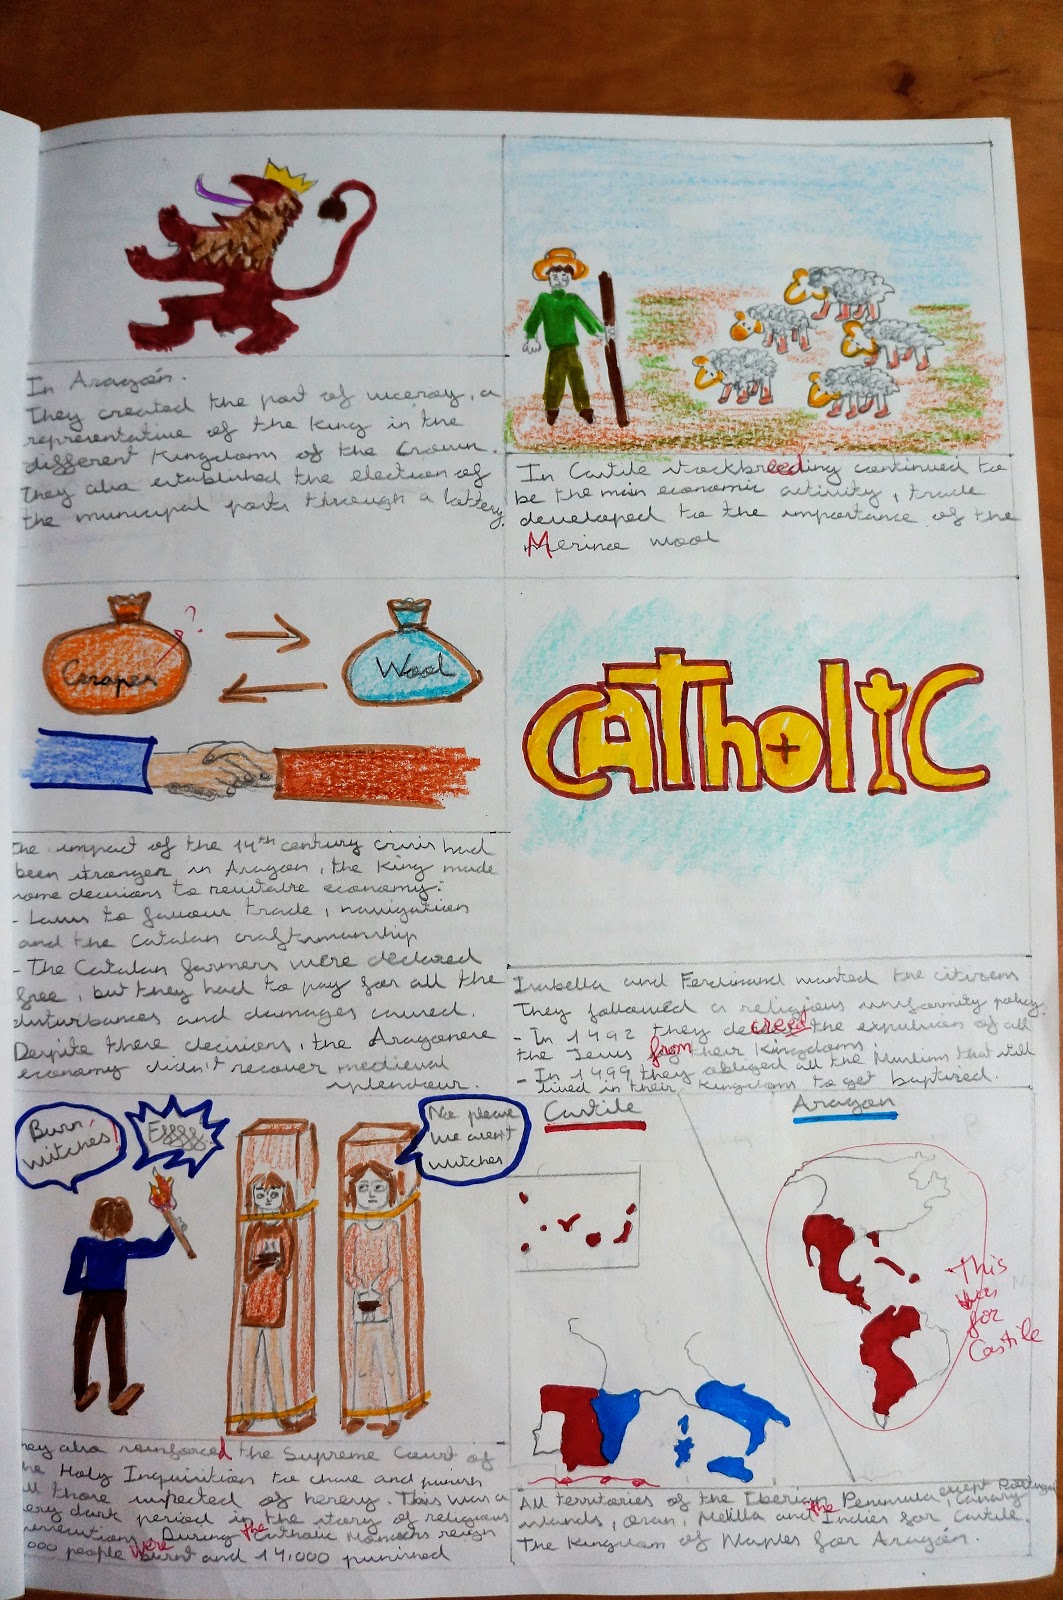 In Aragón.
They created the post of viceroy, a
representative of the King in the
different Kingdoms of the Crown.
They also established the election of
the municipal posts through a lottery.
In Castile stockbreeding continued to
be the main economic activity, trade
developed to the importance of the
Merino wool
Grapes
?
Wool
CATholiC
the impact of the 14th century crisis had
been stronger in Aragon, the King made
some decisions to revitalre economy:
- Laws to favour trade, navigation
and the Catalan craftsmanship
- The Catalan farmers were declared
free, but they had to pay for all the
disturbances and damages caused.
Despite these decisions, the Aragonese
economy didn't recover medieval
splendour.
Isabella and Ferdinand wanted the citizens
They followed a religious uniformity policy.
- In 1492 they decreed the expulsion of all
the Jews from their Kingdoms.
- In 1499 they obliged all the Muslims that still
lived in their Kingdoms to get baptized.
Burn
witches!
No please
we aren't
witches
They also reinforced the Supreme Court of
the Holy Inquisition to chase and punish
all those suspected of heresy. This was a
very dark period in the story of religious
During the Catholic Monarchs reign
000 people were burnt and 14,000 punished
Castile
Aragon
This
was
for
Castile
All territories of the Iberian Peninsula, except Portugal, Canary
islands, Oran, Melilla and the Indies for Castile.
The Kingdom of Naples for Aragón.